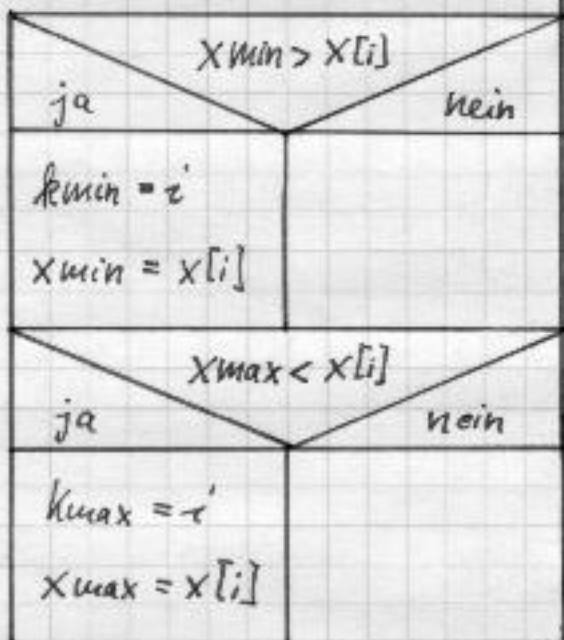 xmin > x[i]
ja nein
kmin = i
xmin = x[i]
xmax < x[i]
ja nein
kmax = i
xmax = x[i]